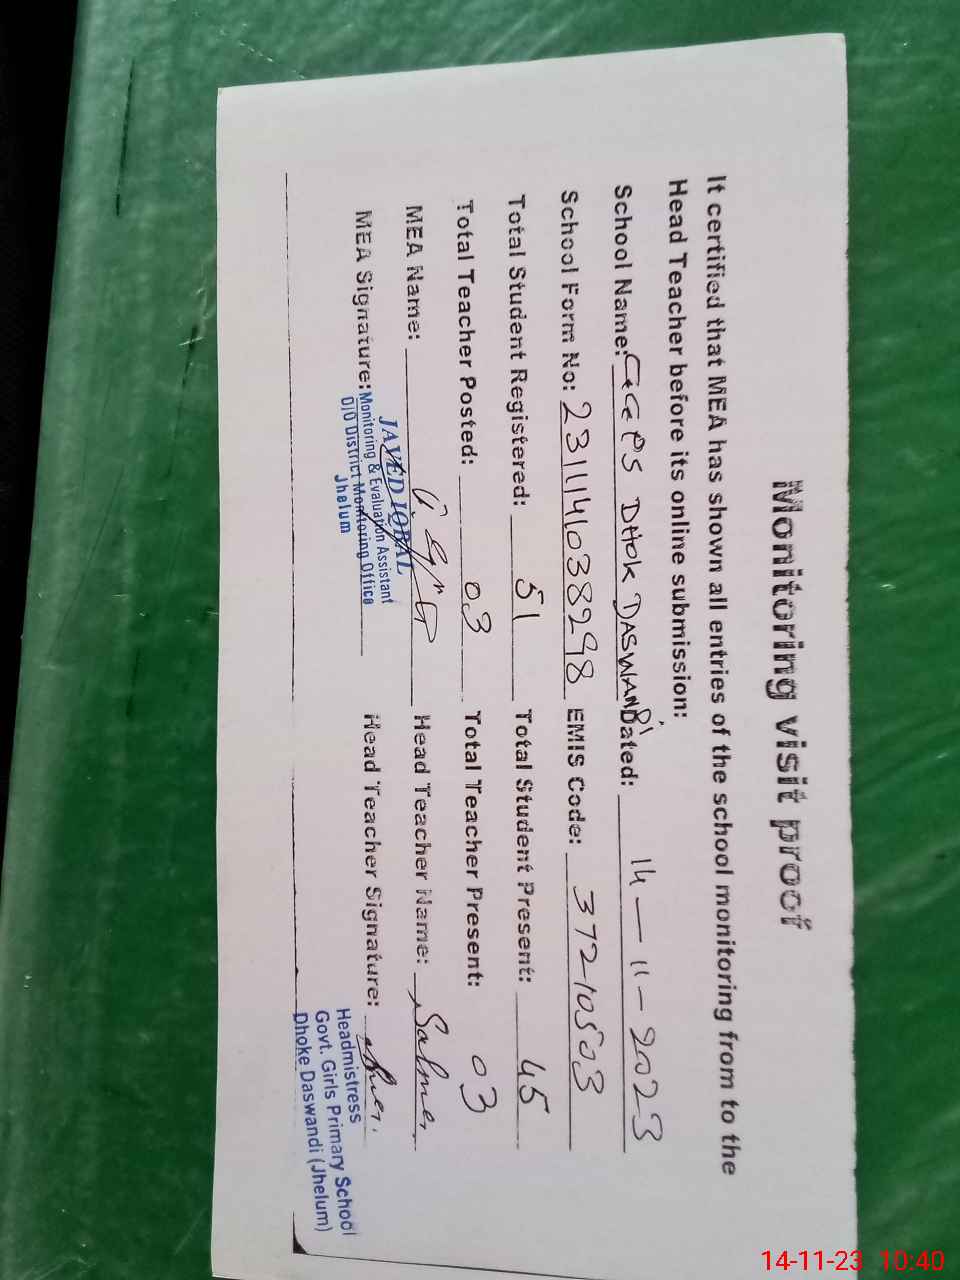 Monitoring visit proof
It certified that MEA has shown all entries of the school monitoring from to the
Head Teacher before its online submission:
School Name: GGPS DHOK DASWANDI Dated: 14-11-2023
School Form No: 2311141038298 EMIS Code: 37210503
Total Student Registered: 51 Total Student Present: 45
Total Teacher Posted: 03 Total Teacher Present: 03
MEA Name: Head Teacher Name: Salma
JAVED IQBAL
MEA Signature: Monitoring & Evaluation Assistant Head Teacher Signature:
O/O District Monitoring Office
Jhelum
Headmistress
Govt. Girls Primary School
Dhoke Daswandi (Jhelum)
14-11-23 10:40